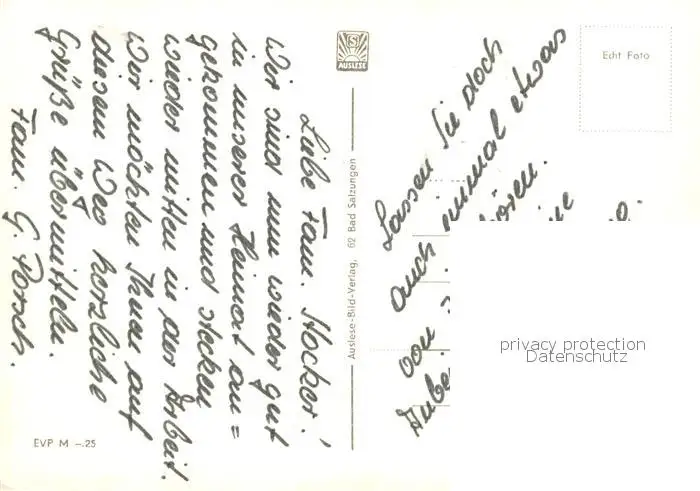 Liebe Fam. Stocker!
Wir sind nun wieder gut
in unserer Heimat an=
gekommen und stecken
wieder mitten in der Arbeit.
Wir möchten Ihnen auf
diesem Weg herzliche
Grüße übermitteln.
Fam. G. Porsch.
Lassen Sie doch
auch einmal etwas
von hören.
AUSLESE
Auslese-Bild-Verlag, 62 Bad Salzungen
Echt Foto
EVP M –.25
privacy protection
Datenschutz